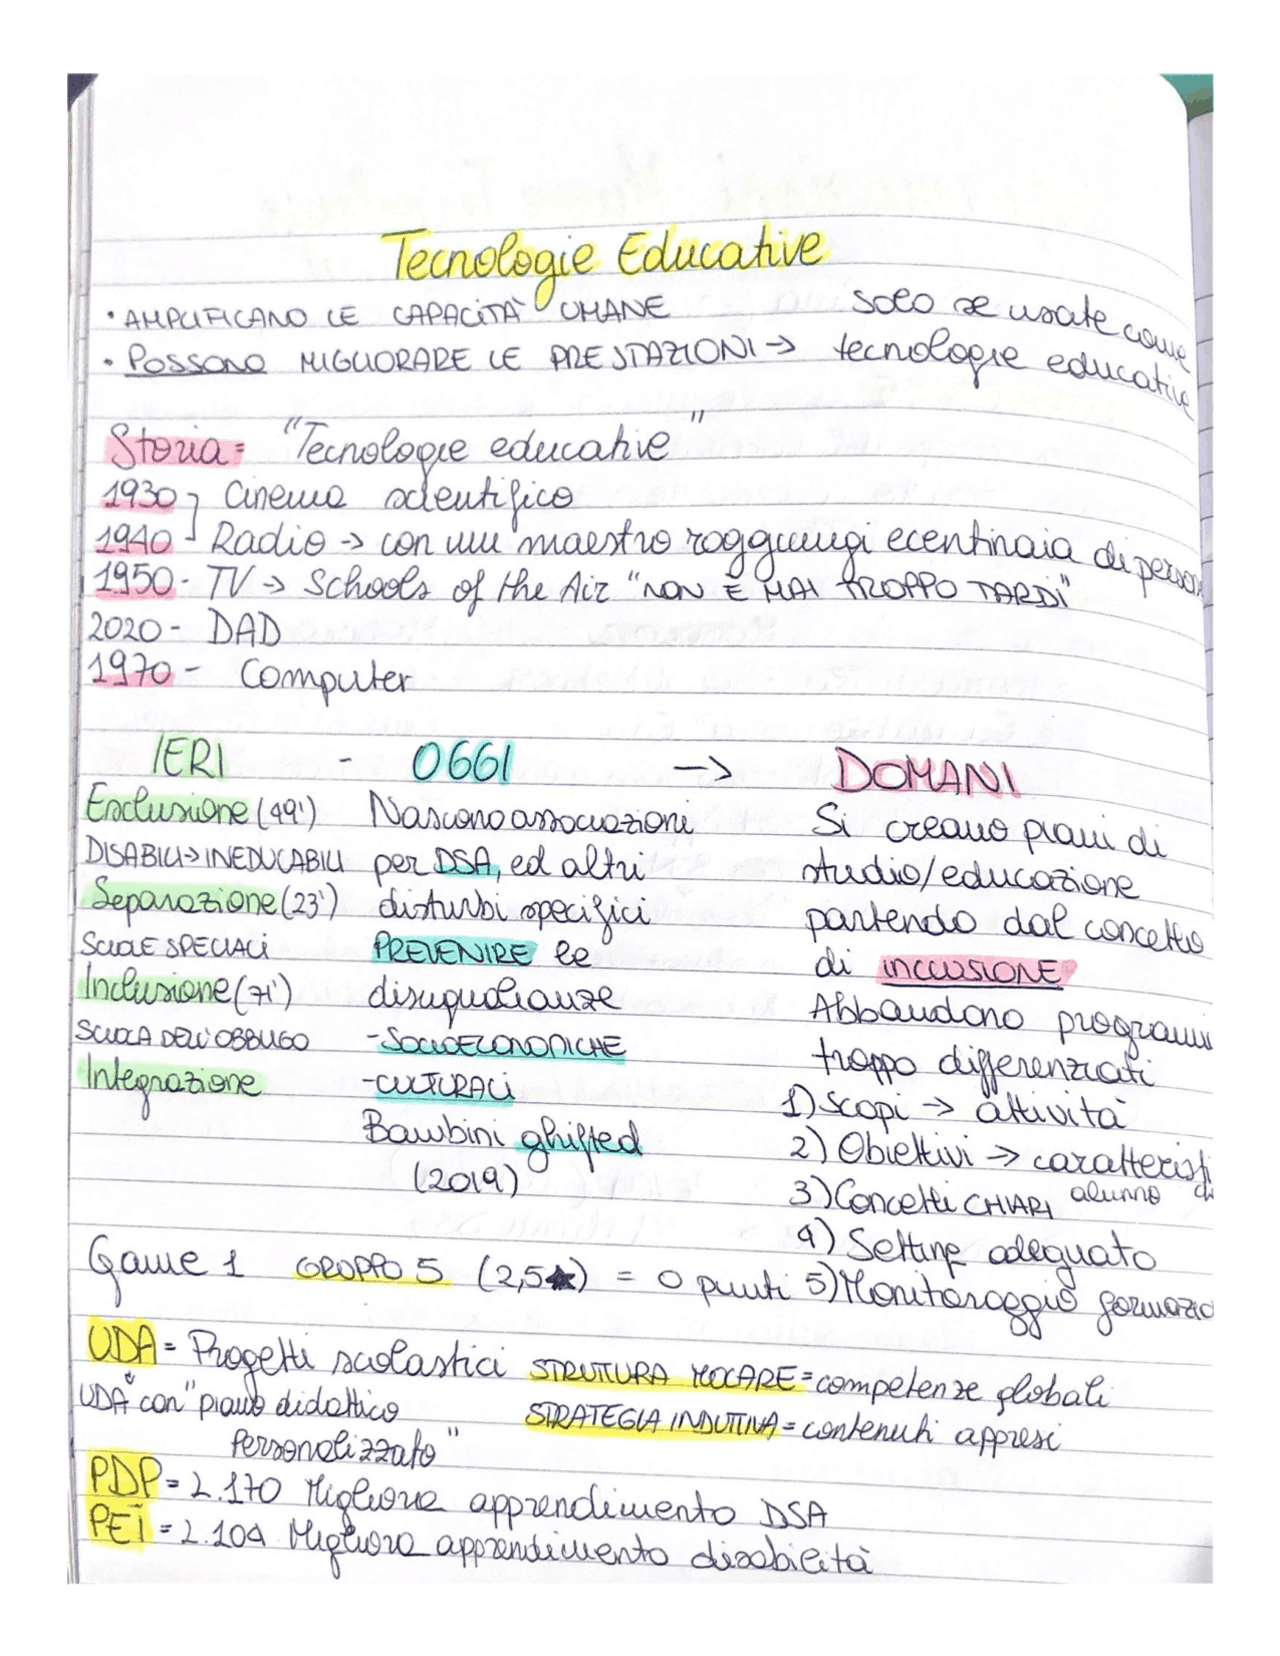 Tecnologie Educative
• AMPLIFICANO LE CAPACITÀ UMANE
• POSSONO MIGLIORARE LE PRESTAZIONI → solo se usate come
tecnologie educative
Storia = "Tecnologie educative"
1930 Cinema scientifico
1940 Radio → con un maestro raggiungi centinaia di person
1950 - TV → Schools of the Air "NON È MAI TROPPO TARDI"
2020 - DAD
1970 - Computer
IERI - OGGI → DOMANI
Esclusione (49')
DISABILI → INEDUCABILI
Separazione (23')
SCUOLE SPECIALI
Inclusione (71')
SCUOLA DELL'OBBLIGO
Integrazione
Nascono associazioni
per DSA, ed altri
disturbi specifici
PREVENIRE le
disuguaglianze
- SOCIOECONOMICHE
- CULTURALI
Bambini ghifted
(2019)
Si creano piani di
studio/educazione
partendo dal concetto
di INCLUSIONE
Abbandono programm
troppo differenziati
1) Scopi → attività
2) Obiettivi → caratteristi
alunno
3) Concetti CHIARI
4) Setting adeguato
5) Monitoraggio formazio
Game 1 GRUPPO 5 (2,5★) = 0 punti
UDA = Progetti scolastici STRUTTURA = competenze globali
UDA con "piano didattico STRATEGIA INDUTTIVA = contenuti appresi
Personalizzato"
PDP = L.170 Migliora apprendimento DSA
PEI = L.104 Migliora apprendimento disabilità